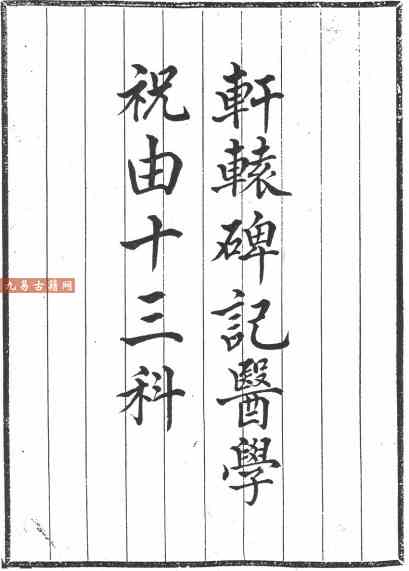 軒轅碑記醫學
祝由十三科
九易古籍网